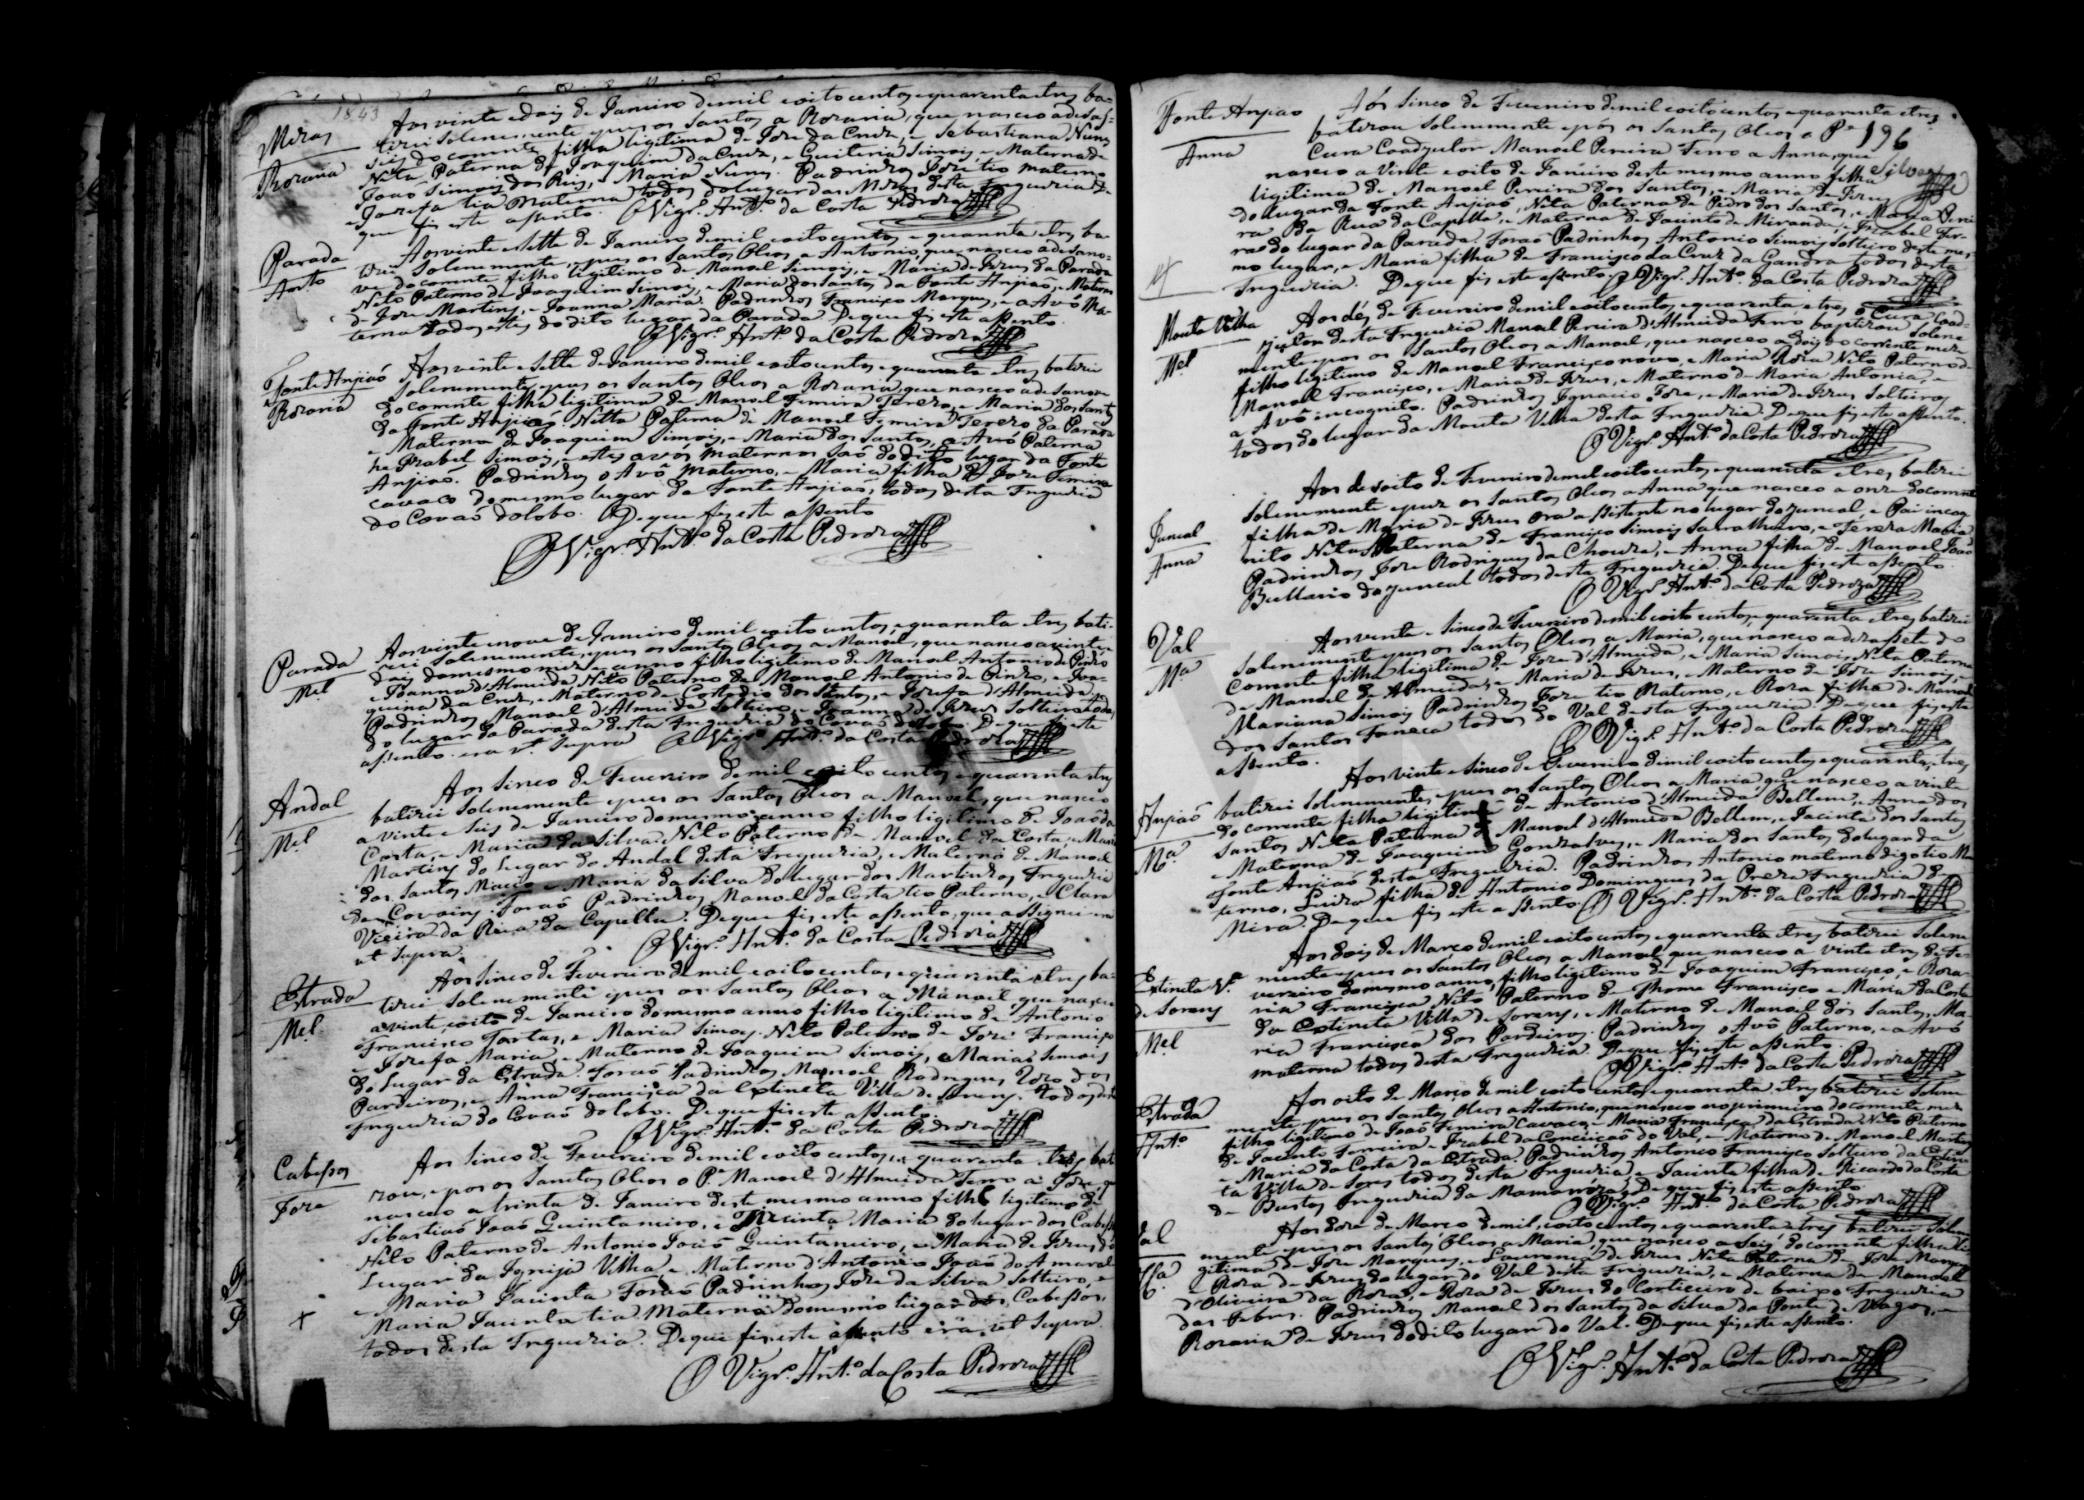 1843
Miras
Rozaria
Aos vinte e dois de Janeiro de mil e oito centos e quarenta e tres ba-
tizei solenemente e puz os Santos a Rozaria, que nasceo a desas-
seis do corrente filha legitima de Joze da Cruz, e Sebastiana Nunes
Neta Paterna de Joaquim da Cruz, e Quiteria Simois, e Materna de
Joaõ Simois dos Reis, e Maria Nunes. Padrinhos Joze tio materno
e Jozefa tia Materna todos do lugar das Miras desta Freguezia De
que fis este assento. O Vigr.º Ant.º da Costa Pedroza
Parada
Ant.º
Aos vinte e sette de Janeiro de mil e oito centos e quarenta e tres ba-
tizei solenemente, e puz os Santos Oleos a Antonio, que nasceo a desano-
ve do corrente filho legitimo de Manoel Simois, e Maria de Jezus da Parada
Neto Paterno de Joaquim Simois, e Maria dos Santos da Fonte Anjiaõ, e Materno
de Joze Martins, e Joanna Maria. Padrinhos Francisco Marques, e a Avó Ma-
terna todos estes do dito lugar da Parada De que fis este assento.
O Vigr.º Ant.º da Costa Pedroza
Fonte Anjiaõ
Rozaria
Aos vinte e sette de Janeiro de mil e oito centos e quarenta e tres batizei
solenemente, e puz os Santos Oleos a Rozaria, que nasceo a desanove
do corrente filha legitima de Manoel Ferreira Terezo, e Maria dos Santos
da Fonte Anjiaõ Netta Paterna de Manoel Ferreira Terezo da Parada
e Materna de Joaquim Simois, e Maria dos Santos, a Avó Paterna
he Izabel Simois, e estes avós maternos saõ do dito lugar da Fonte
Anjiaõ. Padrinhos o Avô Materno, e Maria filha de Joze Ferreira
cavaco do mesmo lugar da Fonte Anjiaõ, todos desta Freguezia
do Covaõ do lobo. De que fis este assento
O Vigr.º Ant.º da Costa Pedroza
Parada
M.el
Aos vinte e nove de Janeiro de mil e oito centos, e quarenta e tres bati-
zei solenemente, e puz os Santos Oleos a Manoel, que nasceo a vinte e
dois do mesmo mez e anno filho legitimo de Manoel Antonio de Pinho
e Joanna d'Almeida, Neto Paterno de Manoel Antonio de Pinho, e Joa-
quina da Cruz, e Materno de Custodio dos Santos, e Jozefa d'Almeida,
Padrinhos Manoel d'Almeida Solteiro, e Joanna de Jezus Solteira todos
do lugar da Parada desta Freguezia do Covaõ do lobo. De que fis este
assento era ut supra O Vigr.º Ant.º da Costa Pedroza
Andal
M.el
Aos sinco de Fevereiro de mil e oito centos, e quarenta e tres
batizei solenemente e puz os Santos Oleos a Manoel, que nasceo
a vinte e seis de Janeiro do mesmo anno filho legitimo de Joaõ da
Costa, e Maria da Silva, Neto Paterno de Manoel da Costa, e Maria
Martins do lugar do Andal desta Freguezia, e Materno de Manoel
dos Santos e Maria da Silva do lugar dos Martinhos Freguezia
de Covoins. Foraõ Padrinhos Manoel da Costa tio Paterno, e Clara
Vieira da Rua da Capella. De que fis este assento, que assignei era
ut supra.
O Vigr.º Ant.º da Costa Pedroza
Estrada
M.el
Aos sinco de Fevereiro de mil e oito centos, e quarenta e tres ba-
tizei solenemente e puz os Santos Oleos a Manoel que nasceo
a vinte, e oito de Janeiro do mesmo anno filho legitimo de Antonio
Francisco Tortas, e Maria Simois. Neto Paterno de Joze Francisco
e Jozefa Maria, e Materno de Joaquim Simois, e Maria Simois
do lugar da Estrada. Foraõ Padrinhos Manoel Rodrigues dos
Pardeiros, e Anna Francisca da extincta Villa de Sorens. todos desta
Freguezia do Covaõ do lobo. De que fis este assento.
O Vigr.º Ant.º da Costa Pedroza
Cabessos
Joze
Aos sinco de Fevereiro de mil e oito centos, e quarenta e tres bati-
zou, e pos os Sanctos Oleos o P.e Manoel d'Almeida Ferro a Joze, que
nasceo a trinta de Janeiro deste mesmo anno filho legitimo de
Sebastiaõ Joaõ Quintaneiro, e Jacinta Maria do lugar dos Cabessos
Neto Paterno de Antonio Joaõ Quintaneiro, e Maria de Jezus do
Lugar da Igreija Velha e Materno d'Antonio Joaõ do Amaral
e Maria Jacinta Foraõ Padrinhos Joze da Silva Solteiro, e
Maria Jacinta tia Materna do mesmo lugar dos Cabessos,
todos desta Freguezia. De que fis este assento era ut supra
O Vigr.º Ant.º da Costa Pedroza
Fonte Anjiao
Anna
196
Silva
Aos sinco de Fevereiro de mil e oito centos e quarenta e tres
batizou solenemente e pós os Santos Oleos o P.e
Cura Coadjutor Manoel Pereira Ferro a Anna, que
nasceo a vinte e oito de Janeiro deste mesmo anno filha
legitima de Manoel Pereira dos Santos, e Maria de Jezus
do lugar da Fonte Anjiaõ, Neta Paterna de Pedro dos Santos, e Maria Perei-
ra da Rua da Capella, e Materna de Jacinto de Miranda, e Izabel Fer-
ra do lugar da Parada. Foraõ Padrinhos Antonio Simois Solteiro deste mes-
mo lugar, e Maria filha de Francisco da Cruz da Gandra todos desta
Freguezia. De que fis este assento. O Vigr.º Ant.º da Costa Pedroza
Mouta Velha
M.el
Aos dés de Fevereiro de mil e oito centos e quarenta, e tres o Cura Coad-
jutor desta Freguezia Manoel Pereira d'Almeida Ferro baptizou solene
mente e pos os Santos Oleos a Manoel, que nasceo a dois do corrente mez
filho legitimo de Manoel Francisco novo, e Maria Roza Neto Paterno de
Manoel Francisco, e Maria de Jezus, e Materno de Maria Antonia, e
o Avô incognito. Padrinhos Ignacio Joze, e Maria de Jezus Solteiros
todos do lugar da Mouta Velha desta Freguezia. De que fis este assento.
O Vigr.º Ant.º da Costa Pedroza
Juncal
Anna
Aos desoito de Fevereiro de mil e oito centos e quarenta e tres batizei
solenemente e puz os Santos Oleos a Anna que nasceo a onze do corrente
filha de Maria de Jezus ora assistente no lugar do juncal, e Pai incog-
nito Neta Materna de Francisco Simois Serralheiro, e Tereza Maria
Padrinhos Joze Rodrigues da Chouza, e Anna filha de Manoel Joaõ
do juncal todos desta Freguezia De que fis este assento
O Vigr.º Ant.º da Costa Pedroza
Val
M.ª
Aos vente e sinco de Fevereiro de mil e oito centos e quarenta e tres batizei
solenemente e puz os Santos Oleos a Maria, que nasceo a dezassete do
corrente filha legitima de Joze d'Almeida, e Maria Simois, Neta Paterna
de Manoel de Almeida, e Maria de Jezus, e Materna de Joze Simois, e
Mariana Simois Padrinhos Joze tio Materno, e Roza filha de Manoel
dos Santos Fonseca todos do Val desta Freguezia De que fis este
assento. O Vigr.º Ant.º da Costa Pedroza
Anjiaõ
M.ª
Aos vinte e sinco de Fevereiro de mil e oito centos e quarenta, e tres
batizei solenemente, e puz os Santos Oleos a Maria, que nasceo a vinte
do corrente filha legitima de Antonio d'Almeida Bellem, e Anna dos
Santos Neta Paterna de Manoel d'Almeida Bellem, e Jacinta dos Santos
e Materna de Joaquim Gonzalves, e Maria dos Santos do lugar da
Fonte Anjiaõ desta Freguezia. Padrinhos Antonio materno digo tio Ma-
terno, Luiza filha de Antonio Domingues da Freguezia de
Mira. De que fis este assento O Vigr.º Ant.º da Costa Pedroza
Extincta V.ª
de Sorens
M.el
Aos dois de Março de mil e oito centos e quarenta e tres batizei solene
mente e puz os Santos Oleos a Manoel que nasceo a vinte e tres de Fe-
vereiro do mesmo anno, filho legitimo de Joaquim Francisco, e Roza-
ria Francisca Neto Paterno de Thome Francisco e Maria da Costa
da Extincta Villa de Sorens, e Materno de Manoel dos Santos, Ma-
ria Francisca dos Pardeiros. Padrinhos o Avô Paterno, e a Avó
materna todos desta Freguezia. De que fis este assento.
O Vigr.º Ant.º da Costa Pedroza
Estrada
Ant.º
Aos oito de Março de mil e oito centos e quarenta e tres batizei solene
mente e puz os Santos Oleos a Antonio, que nasceo no primeiro do corrente mez
filho legitimo de Joaõ Ferreira Cavaco, e Maria Francisca da Estrada Neto Paterno
de Jacinto Ferreira e Izabel da Conceicaõ do Val, e Materno de Manoel Martins
e Maria da Costa da Estrada. Padrinhos Antonio Francisco Solteiro da Extinc-
ta Villa de Sorens todos desta Freguezia, e Jacinta filha de Ricardo da Costa
de Bustos Freguezia da Mamarroza. De que fis este assento
O Vigr.º Ant.º da Costa Pedroza
Val
M.ª
Aos doze de Março de mil, e oito centos e quarenta e tres batizei sole-
mente e puz os Santos Oleos a Maria, que nasceo a seis do corrente filha le-
gitima de Joze Marques, e Lourença de Jezus Neta Paterna de Joze Marques
e Roza de Jezus do lugar do Val desta Freguezia, e Materna de Manoel
d'Oliveira da Roza, e Roza de Jezus do Corticeiro de baixo Freguezia
das Febres. Padrinhos Manoel dos Santos da Silva da Ponte de Vagos, e
Rozaria de Jezus do dito lugar do Val. De que fis este assento.
O Vigr.º Ant.º da Costa Pedroza